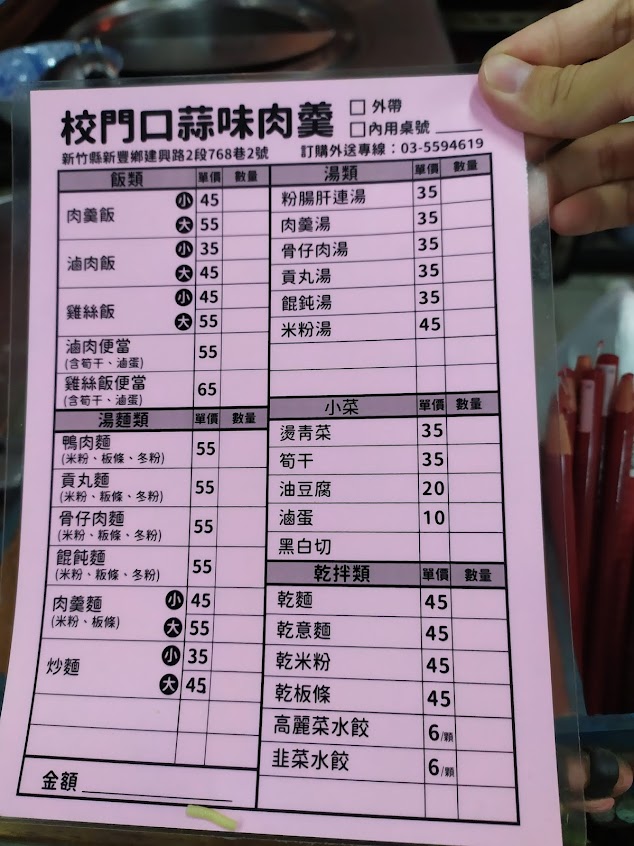 校門口蒜味肉羹
□ 外帶
□ 內用桌號
新竹縣新豐鄉建興路2段768巷2號 訂購外送專線：03-5594619
飯類 單價 數量
肉羹飯 小 45
大 55
滷肉飯 小 35
大 45
雞絲飯 小 45
大 55
滷肉便當 55
(含筍干、滷蛋)
雞絲飯便當 65
(含筍干、滷蛋)
湯麵類 單價 數量
鴨肉麵 55
(米粉、板條、冬粉)
貢丸麵 55
(米粉、粄條、冬粉)
骨仔肉麵 55
(米粉、粄條、冬粉)
餛飩麵 55
(米粉、粄條、冬粉)
肉羹麵 小 45
(米粉、板條) 大 55
炒麵 小 35
大 45
金額
湯類 單價 數量
粉腸肝連湯 35
肉羹湯 35
骨仔肉湯 35
貢丸湯 35
餛飩湯 35
米粉湯 45
小菜 單價 數量
燙青菜 35
筍干 35
油豆腐 20
滷蛋 10
黑白切
乾拌類 單價 數量
乾麵 45
乾意麵 45
乾米粉 45
乾板條 45
高麗菜水餃 6/顆
韭菜水餃 6/顆